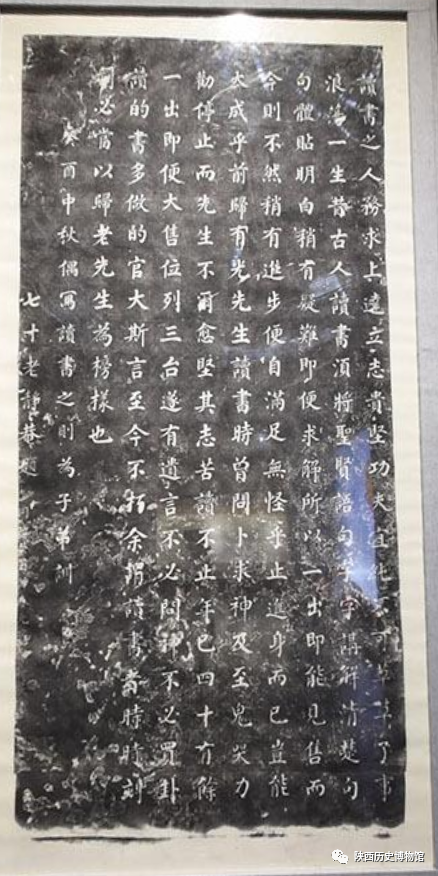 讀書之人務求上達立志貴堅功夫宜不可草草了事
浪蕩一生昔古人讀書須將聖賢語句字字講解清楚句
句體貼明白稍有疑難即便求解所以一出即能見售而
今則不然稍有進步便自滿足無怪乎止進身而已豈能
大成乎前歸有光先生讀書時曾問卜求神及至鬼哭力
勸停止而先生不爾愈堅其志苦讀不止年已四十有餘
一出即便大售位列三台遂有遺言不必問神不必買卦
讀的書多做的官大斯言至今不朽余謂讀書者時時刻
刻必當以歸老先生為榜樣也
癸酉中秋偶寫讀書之則為子弟訓
七十老靜菴題
陕西历史博物馆